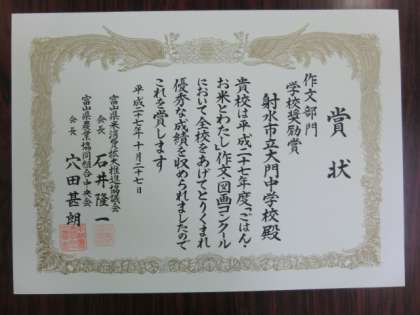 賞状
作文部門
学校奨励賞
射水市立大門中学校殿
貴校は平成二十七年度「ごはん・
お米とわたし」作文図画コンクール
において全校をあげてとりくまれ
優秀な成績を収められましたので
これを賞します
平成二十七年十月二十七日
富山県米消費拡大推進協議会
会長 石井隆一
富山県農業協同組合中央会
会長 穴田甚朗